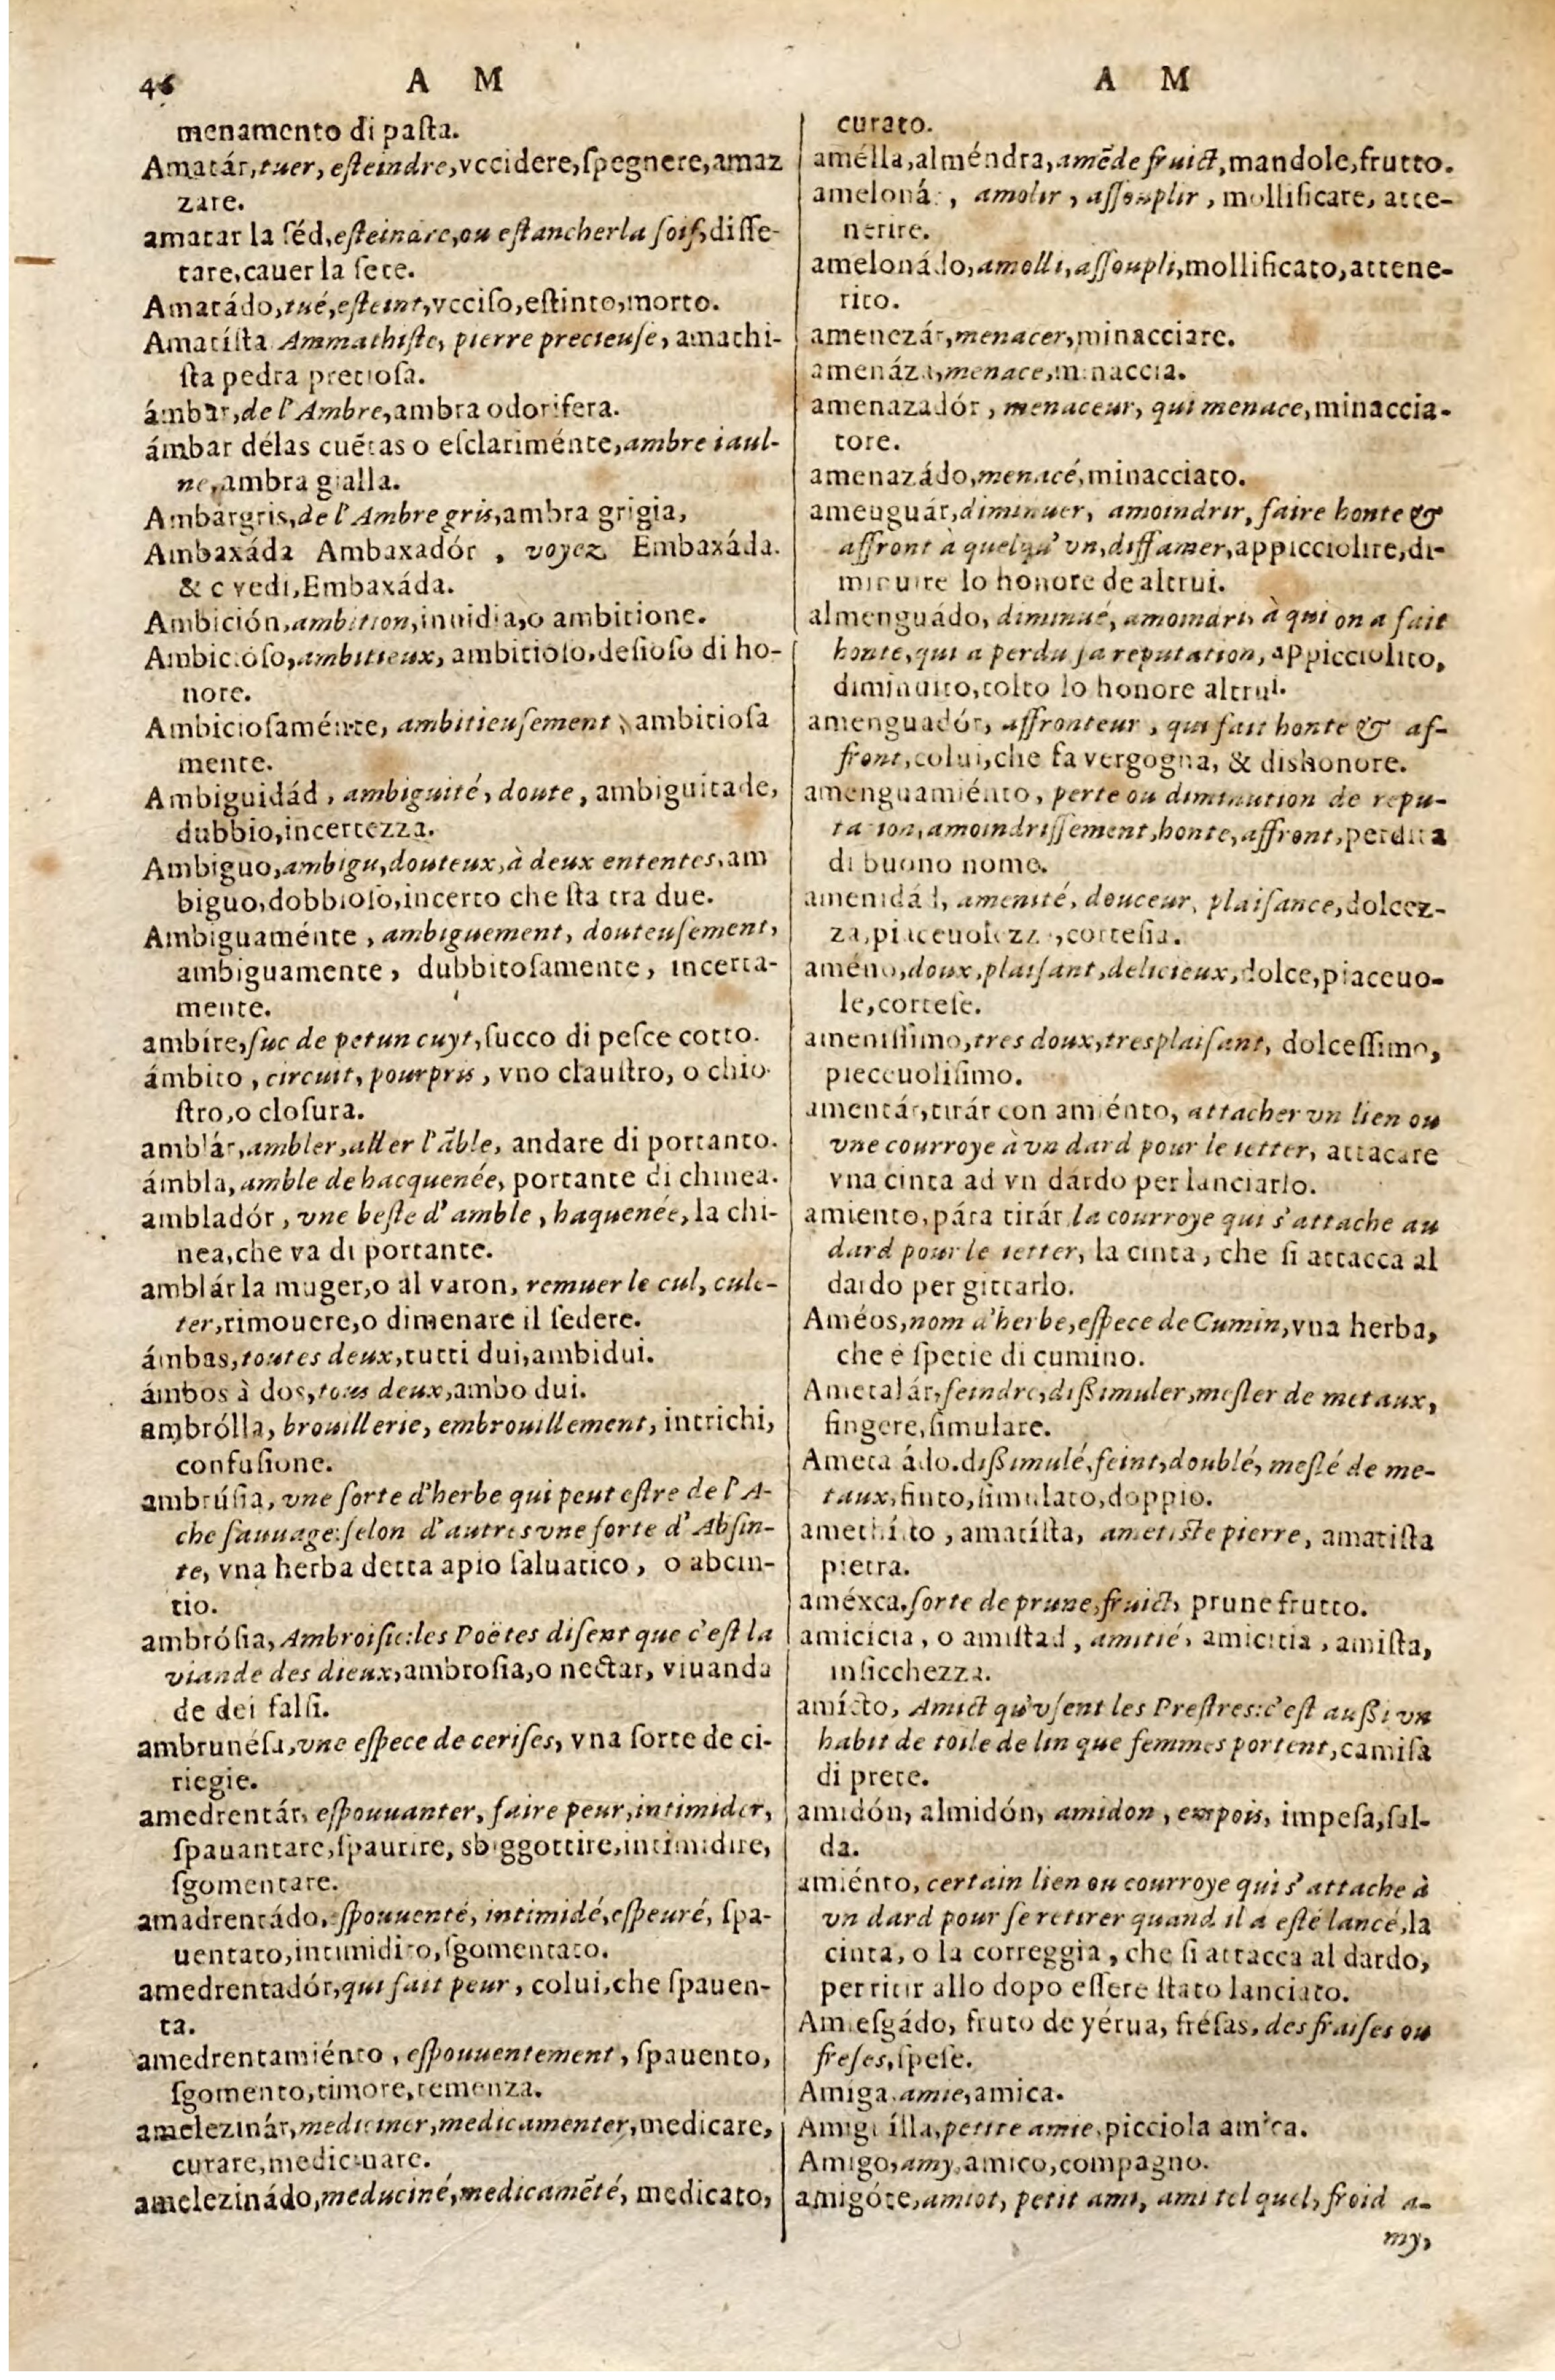 46 A M
menamento di pasta.
Amatár, tuer, esteindre, vccidere, spegnere, amaz
zare.
amatar la séd, esteindre, ou estancher la soif, disse-
tare, cauer la sete.
Amatádo, tué, esteint, vcciso, estinto, morto.
Amatísta Ammathiste, pierre precieuse, amathi-
sta pedra pretiosa.
ámbar, de l'Ambre, ambra odorifera.
ámbar délas cuẽtas o esclariménte, ambre iaul-
ne, ambra gialla.
Ambargris, de l'Ambre gris, ambra grigia,
Ambaxáda Ambaxadór, voyez Embaxáda.
& c vedi, Embaxáda.
Ambición, ambition, inuidia, o ambitione.
Ambicióso, ambitieux, ambitioso, desioso di ho-
nore.
Ambiciosaménte, ambitieusement, ambitiosa
mente.
Ambiguidád, ambiguité, doute, ambiguitade,
dubbio, incertezza.
Ambiguo, ambigu, douteux, à deux ententes, am
biguo, dobbioso, incerto che sta tra due.
Ambiguaménte, ambiguement, douteusement,
ambiguamente, dubbitosamente, incerta-
mente.
ambíre, suc de petun cuyt, succo di pesce cotto.
ámbito, circuit, pourpris, vno claustro, o chio-
stro, o closura.
amblár, ambler, aller l'ãble, andare di portanto.
ámbla, amble de hacquenée, portante di chinea.
ambladór, vne beste d'amble, haquenée, la chi-
nea, che va di portante.
amblár la muger, o al varon, remuer le cul, cule-
ter, rimouere, o dimenare il sedere.
ámbas, toutes deux, tutti dui, ambidui.
ámbos à dos, tous deux, ambo dui.
ambrólla, brouillerie, embrouillement, intrichi,
confusione.
ambrúsia, vne sorte d'herbe qui peut estre de l'A-
che sauuage: selon d'autres vne sorte d'Absin-
te, vna herba detta apio saluatico, o abcin-
tio.
ambrósia, Ambroisie: les Poëtes disent que c'est la
viande des dieux, ambrosia, o nectar, viuanda
de dei falsi.
ambrunésa, vne espece de cerises, vna sorte de ci-
riegie.
amedrentár, espouuanter, faire peur, intimider,
spauantare, spaurire, sbiggottire, intimidire,
sgomentare.
amadrentádo, espouuenté, intimidé, espeuré, spa-
uentato, intimidito, sgomentato.
amedrentadór, qui fait peur, colui, che spauen-
ta.
amedrentamiénto, espouuentement, spauento,
sgomento, timore, temenza.
amelezinár, mediciner, medicamenter, medicare,
curare, medicinare.
amelezinádo, meduciné, medicamẽté, medicato,
A M
curato.
amélla, alméndra, amẽde fruict, mandole, frutto.
amelonár, amolir, assouplir, mollificare, atte-
nerire.
amelonádo, amolli, assoupli, mollificato, attene-
rito.
amenezár, menacer, minacciare.
amenáza, menace, minaccia.
amenazadór, menaceur, qui menace, minaccia-
tore.
amenazádo, menacé, minacciato.
ameuguár, diminuer, amoindrir, faire honte &
affront à quelqu'vn, diffamer, appicciolire, di-
minuire lo honore de altrui.
almenguádo, diminué, amoindri, à qui on a fait
honte, qui a perdu sa reputation, appicciolito,
diminuito, tolto lo honore altrui.
amenguadór, affronteur, qui fait honte & af-
front, colui, che fa vergogna, & dishonore.
amenguamiénto, perte ou diminution de repu-
tation, amoindrissement, honte, affront, perdita
di buono nome.
amenidád, amenité, douceur, plaisance, dolcez-
za, piaceuolezza, cortesia.
améno, doux, plaisant, delicieux, dolce, piaceuo-
le, cortese.
amenissimo, tres doux, tresplaisant, dolcessimo,
pieceuolisimo.
amentár, tirár con amiénto, attacher vn lien ou
vne courroye à vn dard pour le ietter, attacare
vna cinta ad vn dardo per lanciarlo.
amiento, pára tirár, la courroye qui s'attache au
dard pour le ietter, la cinta, che si attacca al
dardo per gittarlo.
Améos, nom d'herbe, espece de Cumin, vna herba,
che é spetie di cumino.
Ametalár, feindre, dissimuler, mesler de metaux,
fingere, simulare.
Ametaládo. dissimulé, feint, doublé, meslé de me-
taux, finto, simulato, doppio.
amethísto, amatísta, ametiste pierre, amatista
pietra.
améxca. sorte de prune, fruict, prune frutto.
amicicia, o amistad, amitié, amicitia, amista,
insicchezza.
amícto, Amict qu'vsent les Prestres: c'est aussi vn
habit de toile de lin que femmes portent, camisa
di prete.
amidón, almidón, amidon, empois, impesa, sal-
da.
amiénto, certain lien ou courroye qui s'attache à
vn dard pour se retirer quand il a esté lancé, la
cinta, o la correggia, che si attacca al dardo,
per ritir allo dopo essere stato lanciato.
Amiesgádo, fruto de yérua, frésas, des fraises ou
freses, spese.
Amiga, amie, amica.
Amiguílla, petite amie, picciola amica.
Amigo, amy, amico, compagno.
amigóte, amiot, petit ami, ami tel quel, froid a-
my,